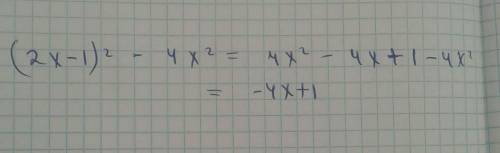 (2x-1)² - 4x² = 4x² - 4x + 1 - 4x²
= -4x+1